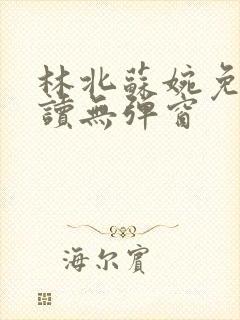 林北蘇婉免
讀無彈窗
海尔賓